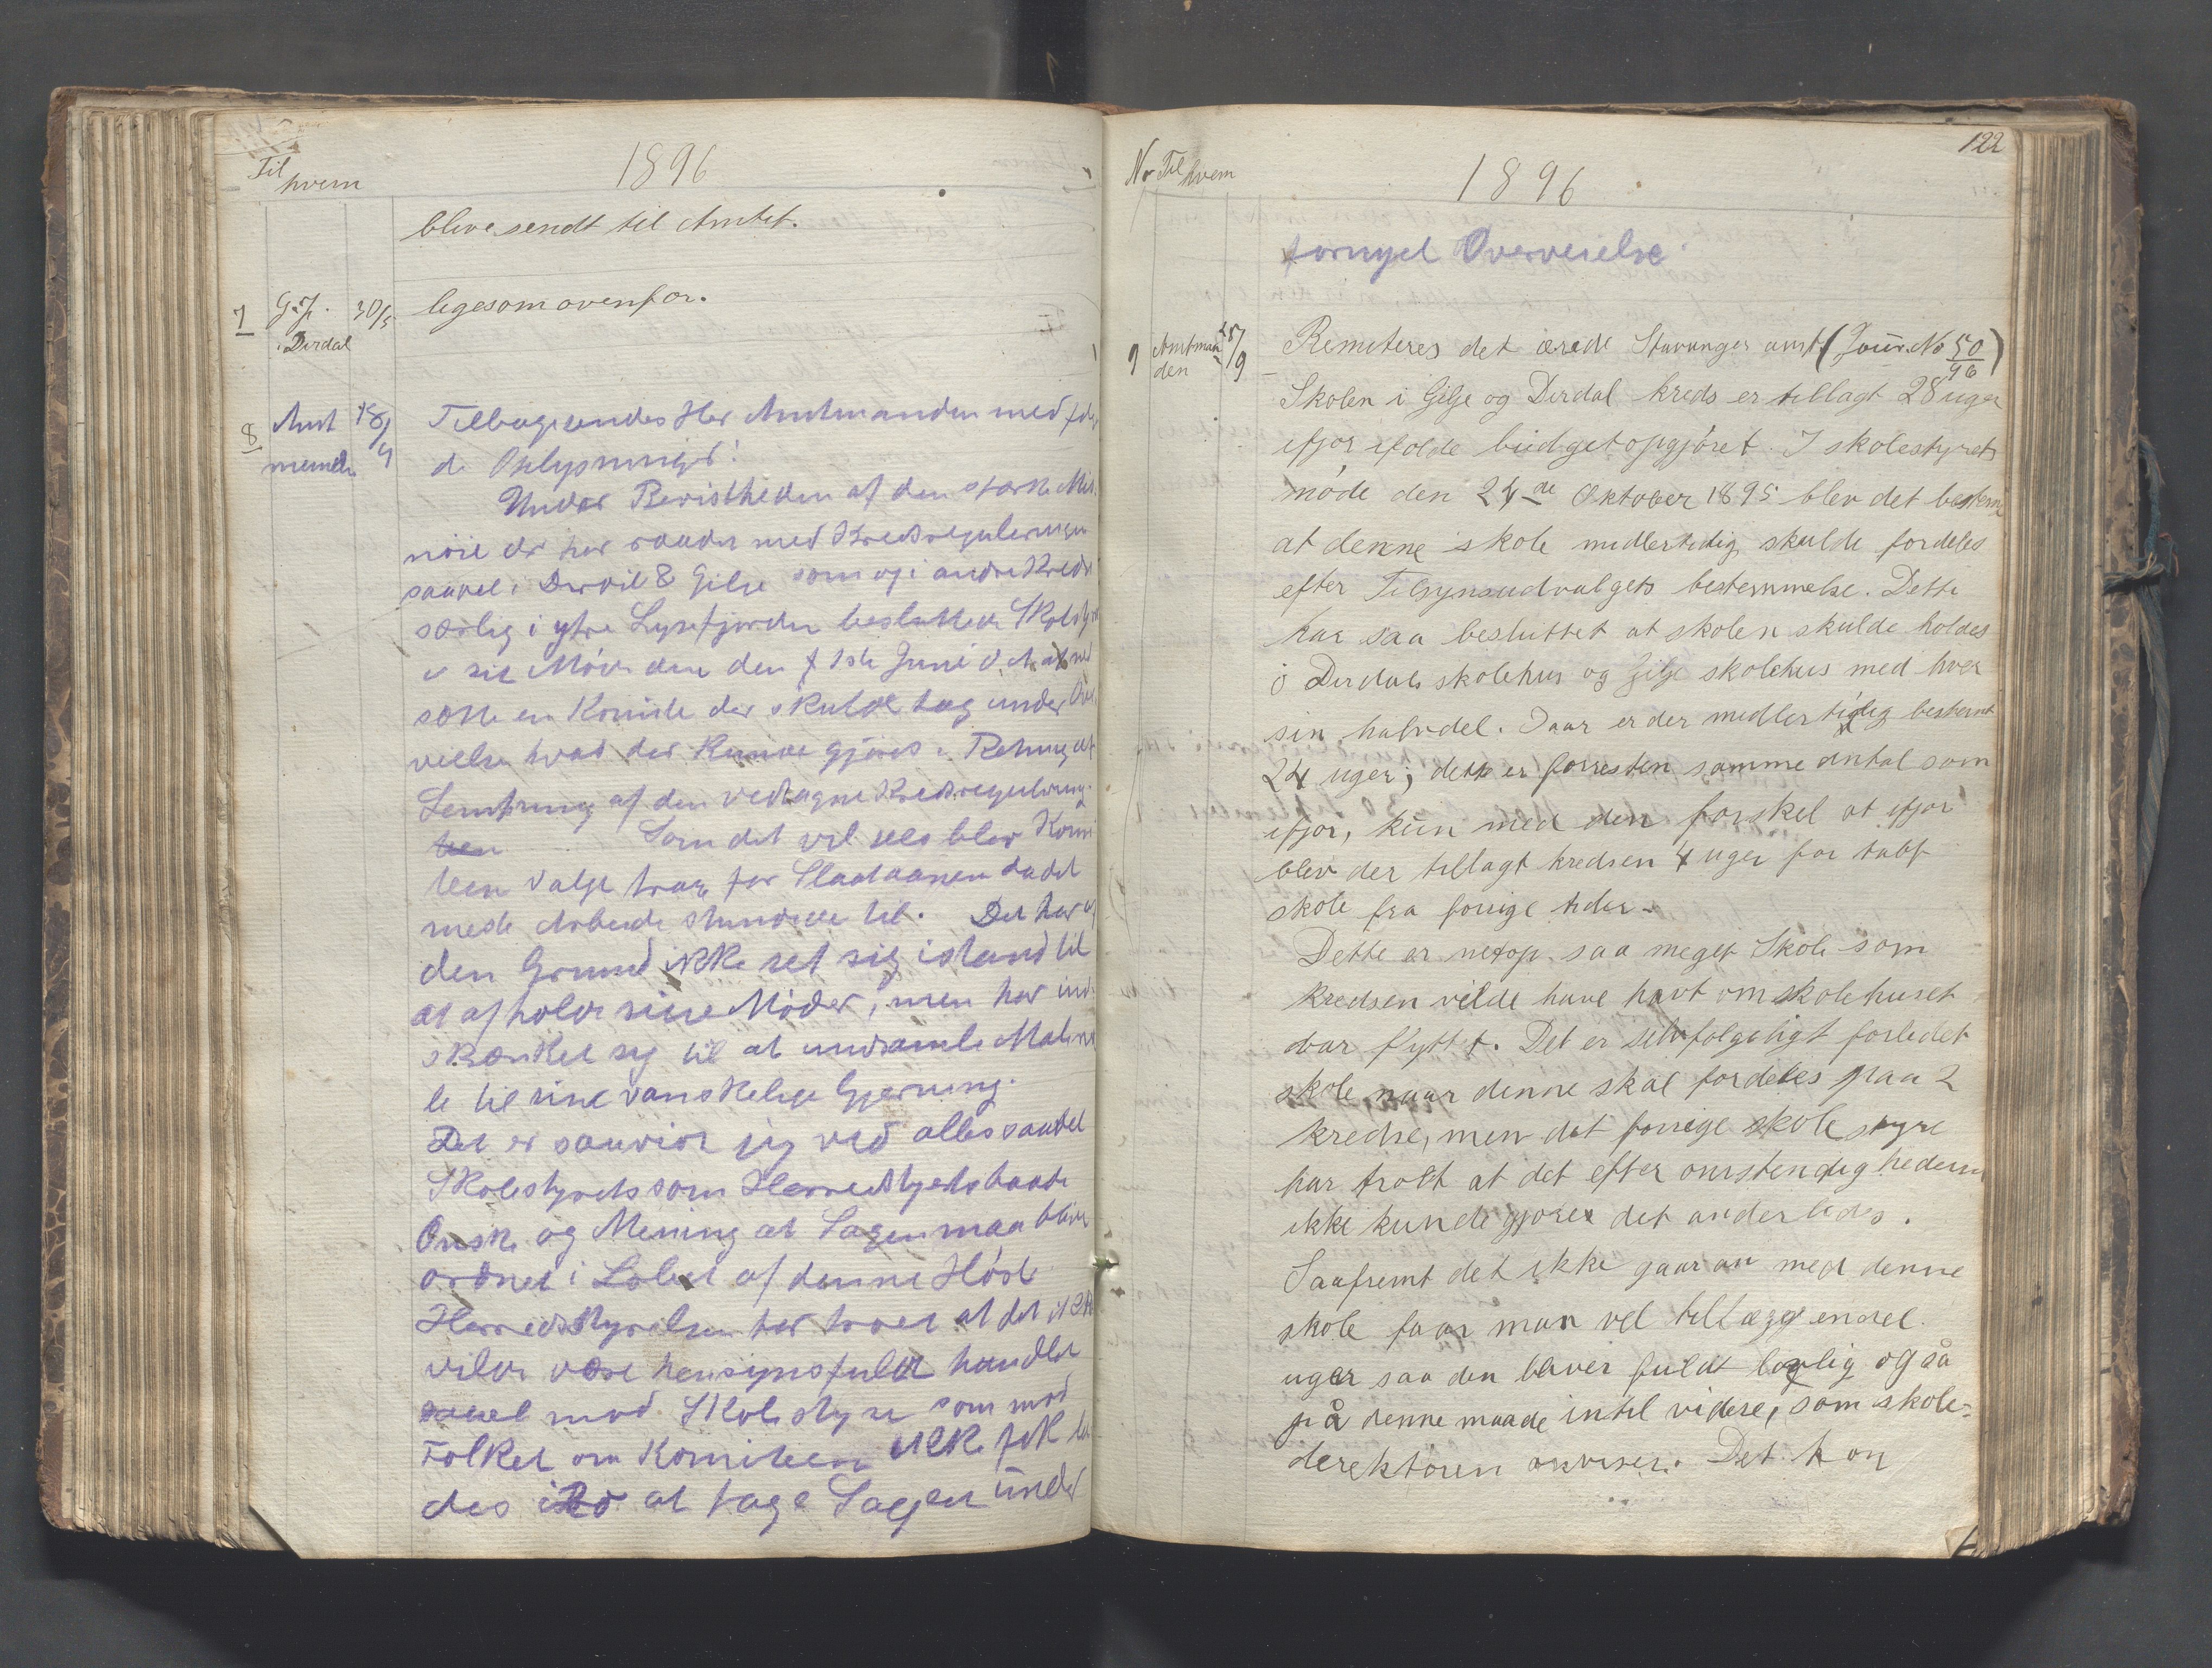 Til hvem
1896
blive sendt til Amtet.
7 G. J. i Dirdal 30/5 ligesom ovenfor.
8 Amtmanden 18/9 Tilbagesendes Hr Amtmanden med følg
de Oplysninger:
Under Bevistheden af den stærke Mis
nöie der her raader med Kredsreguleringen
saavel i Dirdal & Gilje som og i andre Kredse
særlig i ytre Lysefjorden besluttede Skolestyret
i sit Möde den 1ste Juni d. A. at ned
sætte en Komite der skulde tag under Over
veielse hvad der kunde gjöres i Retning af
Lempning af den vedtagne Kredsregulering.
Som det vil sees blev Komi
teen valgt trange for Slaataanen da det
meste Arbeide stundede til. Det har af
den Grund ikke set sig istand til
at afholde sine Möder, men har ind
skrænket sig til at indsamle Materia
le til sine vanskelige Gjerning.
Det er saavidt jeg ved alles saavel
Skolestyrets som Herredstyrets baade
Önske og Mening at Sagen maa blive
ordnet i Löbet af denne Höst
Herredsstyrelsen har troet at det ikke
vilde være hensynsfuldt handlet
saavel mod Skolestyre som mod
Folket om Komiteen ikke fik
des at tage Sagen under
122
No Til hvem
1896
fornyet Overveielse.
9 Amtmanden 25/9 Remiteres det ærede Stavanger amt (Jour. No 50/96)
Skolen i Gilje og Dirdal kreds er tillagt 28 uger
ifjor ifölde budgetopgjöret. I skolestyrets
möde den 24de Oktober 1895 blev det bestemt
at denne skole midlertidig skulde fordeles
efter Tilsynsudvalgets bestemmelse. Dette
har saa besluttet at skolen skulde holdes
i Dirdals skolehus og Gilje skolehus med hver
sin halvdel. Iaar er der midlertidig bestemt
24 uger; dette er forresten samme antal som
ifjor, kun med den forskel at ifjor
blev der tillagt kredsen 4 uger for tabt
skole fra forrige tider.
Dette er netop saa meget Skole som
kredsen vilde have havt om skolehuset
var flyttet. Det er selvfolgeligt forledet
skole naar denne skal fordeles paa 2
kredse, men det forrige skolestyre
har trolt at det efter omstendighederne
ikke kunde gjores det anderledes.
Saafremt det ikke gaar an med denne
skole faar man vel tillægge endel
uger saa den bliver fuldt lovlig også
på denne maade intil videre, som skole-
derektören anviser. Det kan